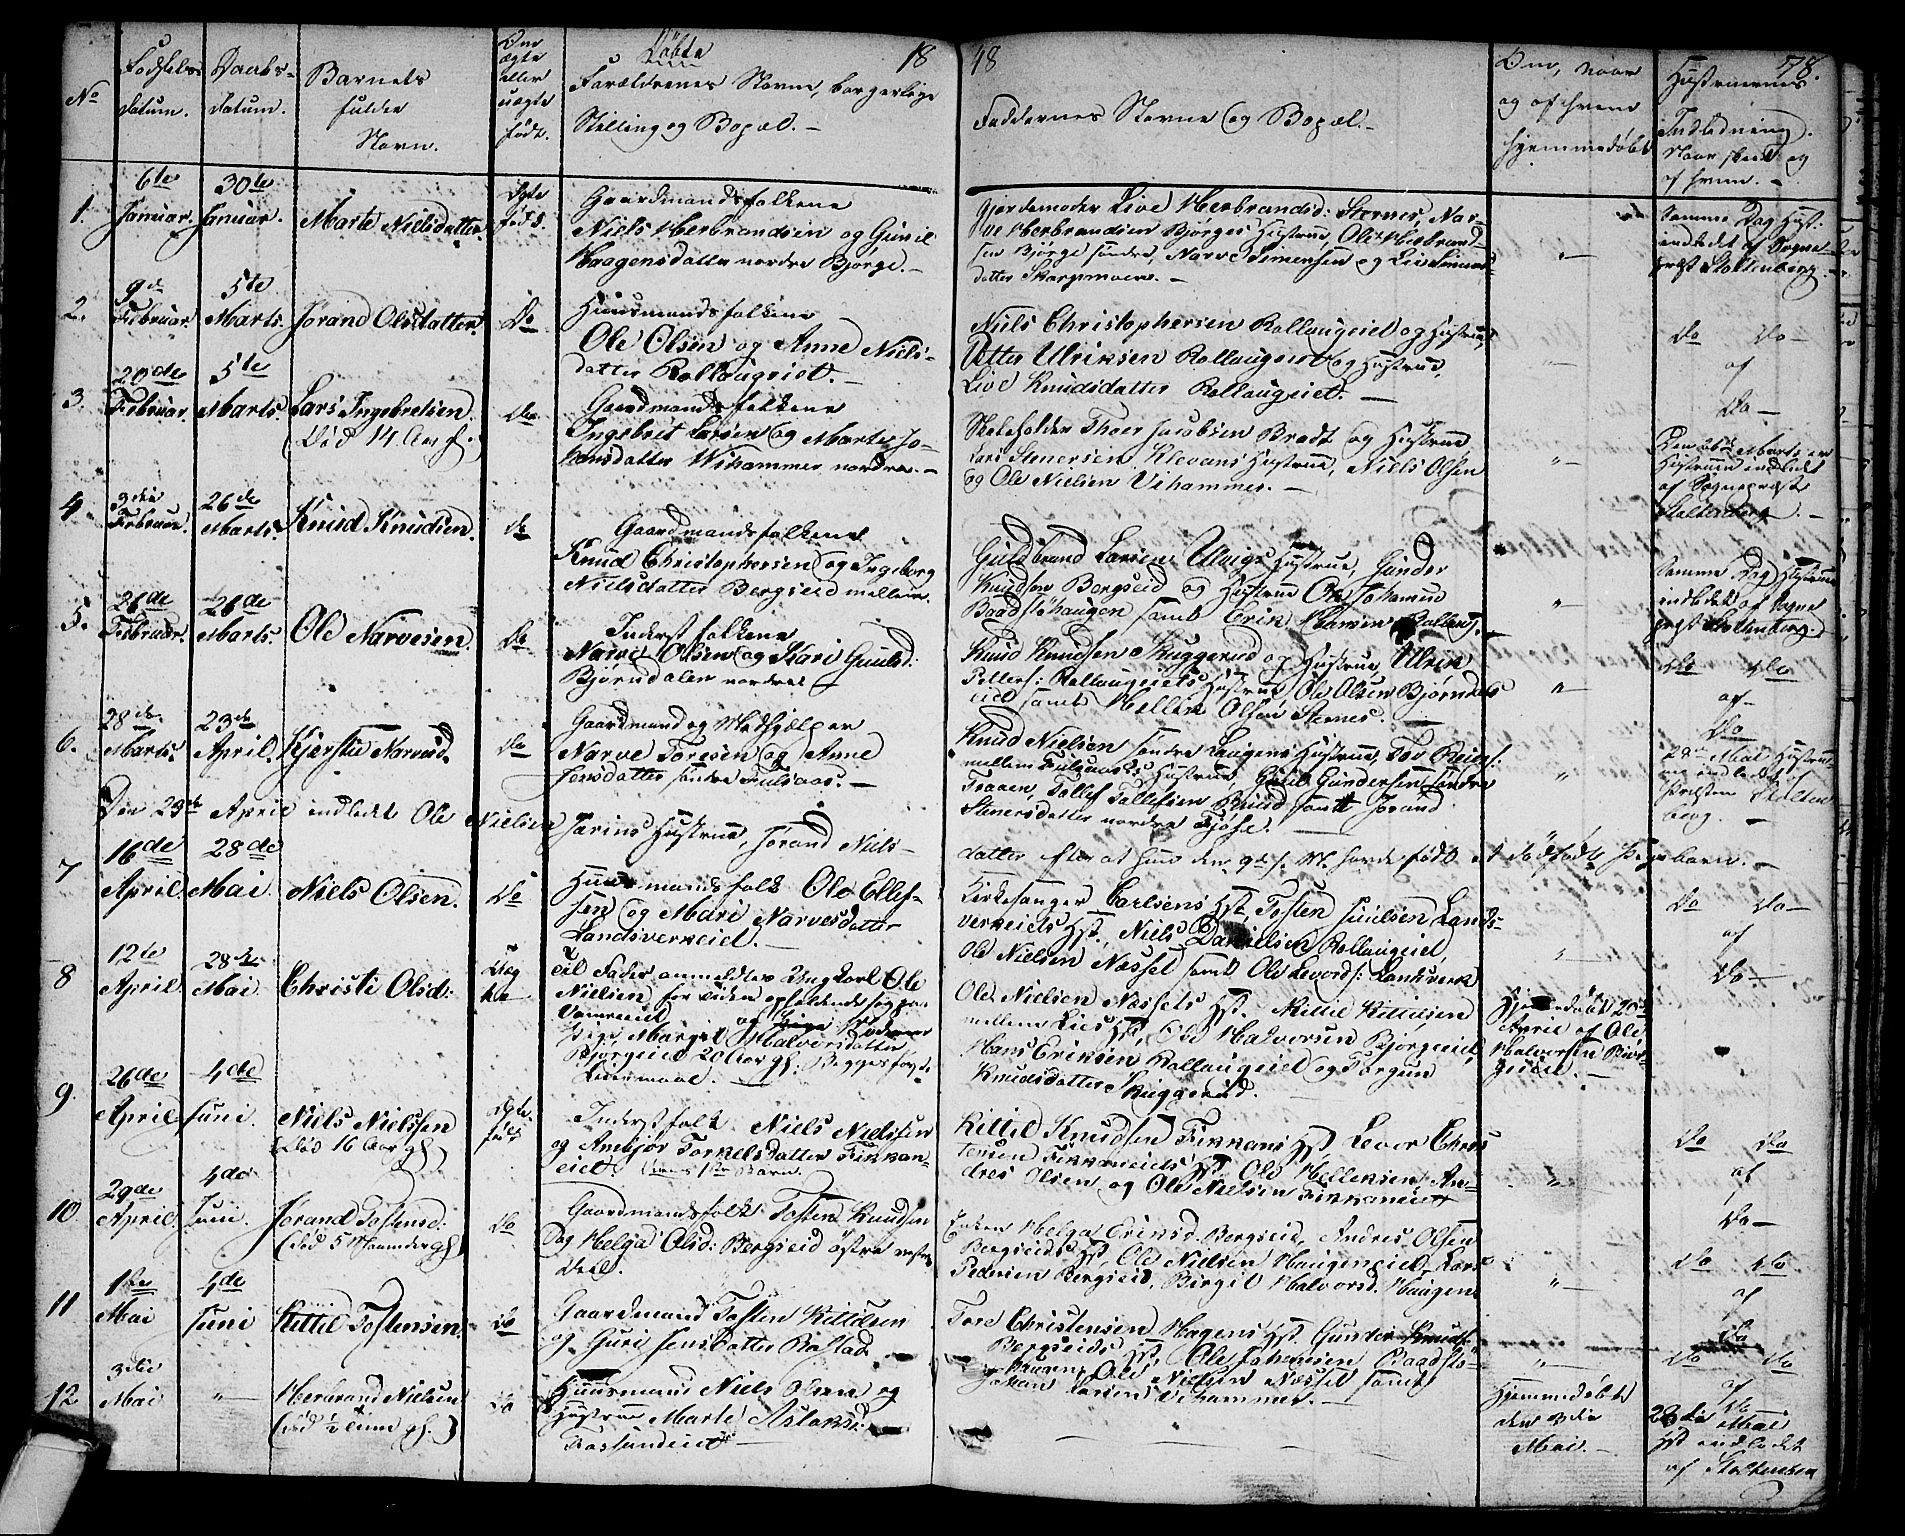 Døbte 18 48 78.
No
Fødsels Datum.
Daabs- Datum.
Barnets fulde Navn.
Om ægte eller uægte født.
Forældrenes Navne, borgerlige
Stilling og Bopæl.
Faddernes Navne og Bopæl.
Om, naar og af hvem hjemmedøbt
Hustruernes Indledning. Naar skeed og af hvem.
1. 6te Januar. 30te Januar. Marte Nielsdatter. Ægte født.
Gaardmandsfolkene
Niels Herbrandsen og Gunil
Haagensdatter nordre Bjørge.
Gjordemoder Live Herbrandsd: Sternes, Nar-
ve Herbrandsen Bjørges Hustrue, Ole Herbrand-
sen Bjørge søndre, Narve Simensen og Live Simens-
datter Skarpmoen.
Samme Dag Hust:
indledet af Sogne
præst Stoltenberg
2. 9de Februar. 5te Marts. Jorand Olsdatter. Do
Huusmandsfolkene
Ole Olsen og Anne Niels-
datter Rollaugeiet.
Niels Christophersen Rollaugeiet og Hustrue,
Petter Ulriksen Rollaugeiet og Hustrue,
Live Knudsdatter Rollaugeiet.
Do Do
af
Do
3. 20de Februar. 5te Marts. Lars Ingebretsen. Do
(Død 14 Aar g.)
Gaardmandsfolkene
Ingebret Larsen og Marte Jo-
hansdatter Wihammer nordre.
Skoleholder Thoer Jacobsen Bradt og Hustrue
Lars Stenersen Klevans Hustrue, Niels Olsen
og Ole Nielsen Vihammer.
Den 26de Marts er
Hustruen indledt
af Sognepræst
Stoltenberg
4. 3die Februar. 26de Marts. Knud Knudsen. Do
Gaardmandsfolkene
Knud Christophersen og Ingeborg
Nielsdatter Bergseid mellem
Guldbrand Larsen Ulvigs Hustrue, Gunder
Knudsen Bergseid og Hustrue Ole Johannes
Baadstøhaugen samt Erik Hansen Rollaug.
Samme Dag Hustrue
indledet af Sogne
præst Stoltenberg
5. 26de Februar. 26de Marts. Ole Narvesen. Do
Inderstfolkene
Narve Olsen og Kari Gulds:
Bjørndalen nordre
Knud Knudsen Ruggerud og Hustrue, Ulrik
Petters: Rollaugeiets Hustrue, Ole Olsen Bjørndals
eiet samt Helleik Olsen Sternes.
Do Do
af
Do
6. 28de Marts. 23de April. Kjersti Narvesd. Do
Gaardmand og Medhjælper
Narve Toresen og Anne
Jensdatter søndre Fulsaas.
Knud Nielsen søndre Laugens Hustrue, Tor Reiers:
mellem Fulsaas's Hustrue, Gulik Gundersen søndre
Traaen, Tollef Tollefsen Ruud samt Jorand
Stenersdatter nordre Fjøse.
28de Mai Hustrue
en indledet af
Præsten Stolten
berg.
Den 23de April indledet Ole Nielsen Jarins Hustrue, Jorand Niels-
datter efter at hun den 9de f. M. havde født et dødfødt Pigebarn.
7 16de April. 28de Mai Niels Olsen. Do
Huusmandsfolk Ole Ellef-
sen og Mari Narvesdatter
Landsverkeiet.
Kirkesanger Carlsens Hst, Tosten Juulsen Lands-
verkeiets Hst, Niels Danielsen Rollaugeiet,
Ole Nielsen Næsset samt Ole Levords: Landsverk
Do Do
af
Do
8 12te April. 28de Mai. Christi Olsd: Uæg te
Til Fader anmeldtes Ungkarl Ole
Nielsen
og Pige Margit Halvorsdatter
Bjørgeeiet 20 Aar gl: Begges første
Leiermaal.
Ole Nielsen Næssets Hst, Kittil Kittilsen
mellem Lies Hst, Ole Halvorsen Bjørgeeiet,
Hans Eriksen Rollaugeiet og Torgun
Knudsdatter Ruggerud.
Hjemmedøbt 20de
April af Ole
Halvorsen Bjør-
geeiet.
9. 26de April 4de Juni Niels Nielssen Ægte født
(død 16 Aar gl)
Inderstfolk Niels Nielssen
og Ambjør Torkelsdatter Fekkan-
eiet. deres 1ste Barn.
Kittil Knudsen Fekkans Hst, Levor Chris
tensen Fekkaneiets Hst, Ole Helleksen, An-
dres Olsen og Ole Nielsen Fekkaneiet
Do Do
af
Do
10. 29de April. 4de Juni Jorand Tostensd: Do
(død 5 Maaneder gl)
Gaardmandsfolk Tosten Knudsen
og Helga Olsd: Bergseid østre vestre
Deel.
Enken Helga Eriksd. Bergseid, Andres Olsen
Bergseids Hst, Ole Nielsen Haugeneiet, Lars
Pedersen Bergseid, Birgit Halvorsd. Haugen
Do Do
af
Do
11 1ste Mai 4de Juni Kittil Tostensen. Do
Gaardmand Tosten Kittilsen
og Guri Jensdatter Bolstad
Tore Christensen Hagens Hst, Gunder Knuds:
Bergseids Hst, Ole Johannesen Baadstø-
haugen, Ole Nielsen Næsset samt
Johan Larsen Vihammer.
Do Do
af
Do
12 3die Mai " Herbrand Nielsen Do
(død ½ Time gl.)
Huusmand Niels Olsen og
Hustrue Marte Aslaksd:
Fossumeiet
Hjemmedøbt
den 3die
Mai.
28de Mai
Hst indledet
af Stoltenberg